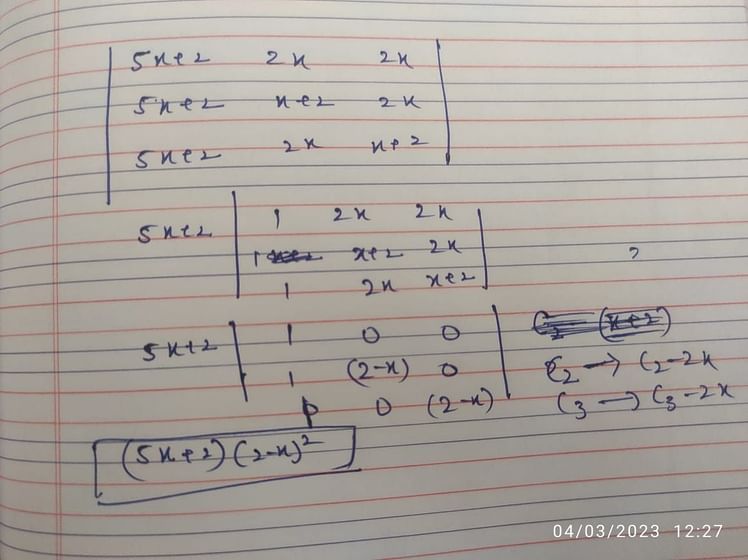 5x+2 2x 2x
5x+2 x+2 2x
5x+2 2x x+2
5x+2 | 1 2x 2x |
1 x+2 2x
1 2x x+2
?
5x+2 | 1 0 0 |
1 (2-x) 0 C₂ → C₂-2x
0 (2-x) C₃ → C₃-2x
(5x+2)(2-x)²
04/03/2023 12:27